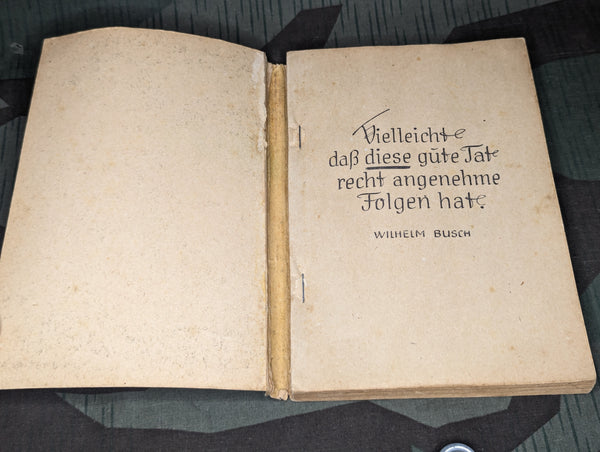 Vielleicht
daß diese gute Tat
recht angenehme
Folgen hat.
WILHELM BUSCH